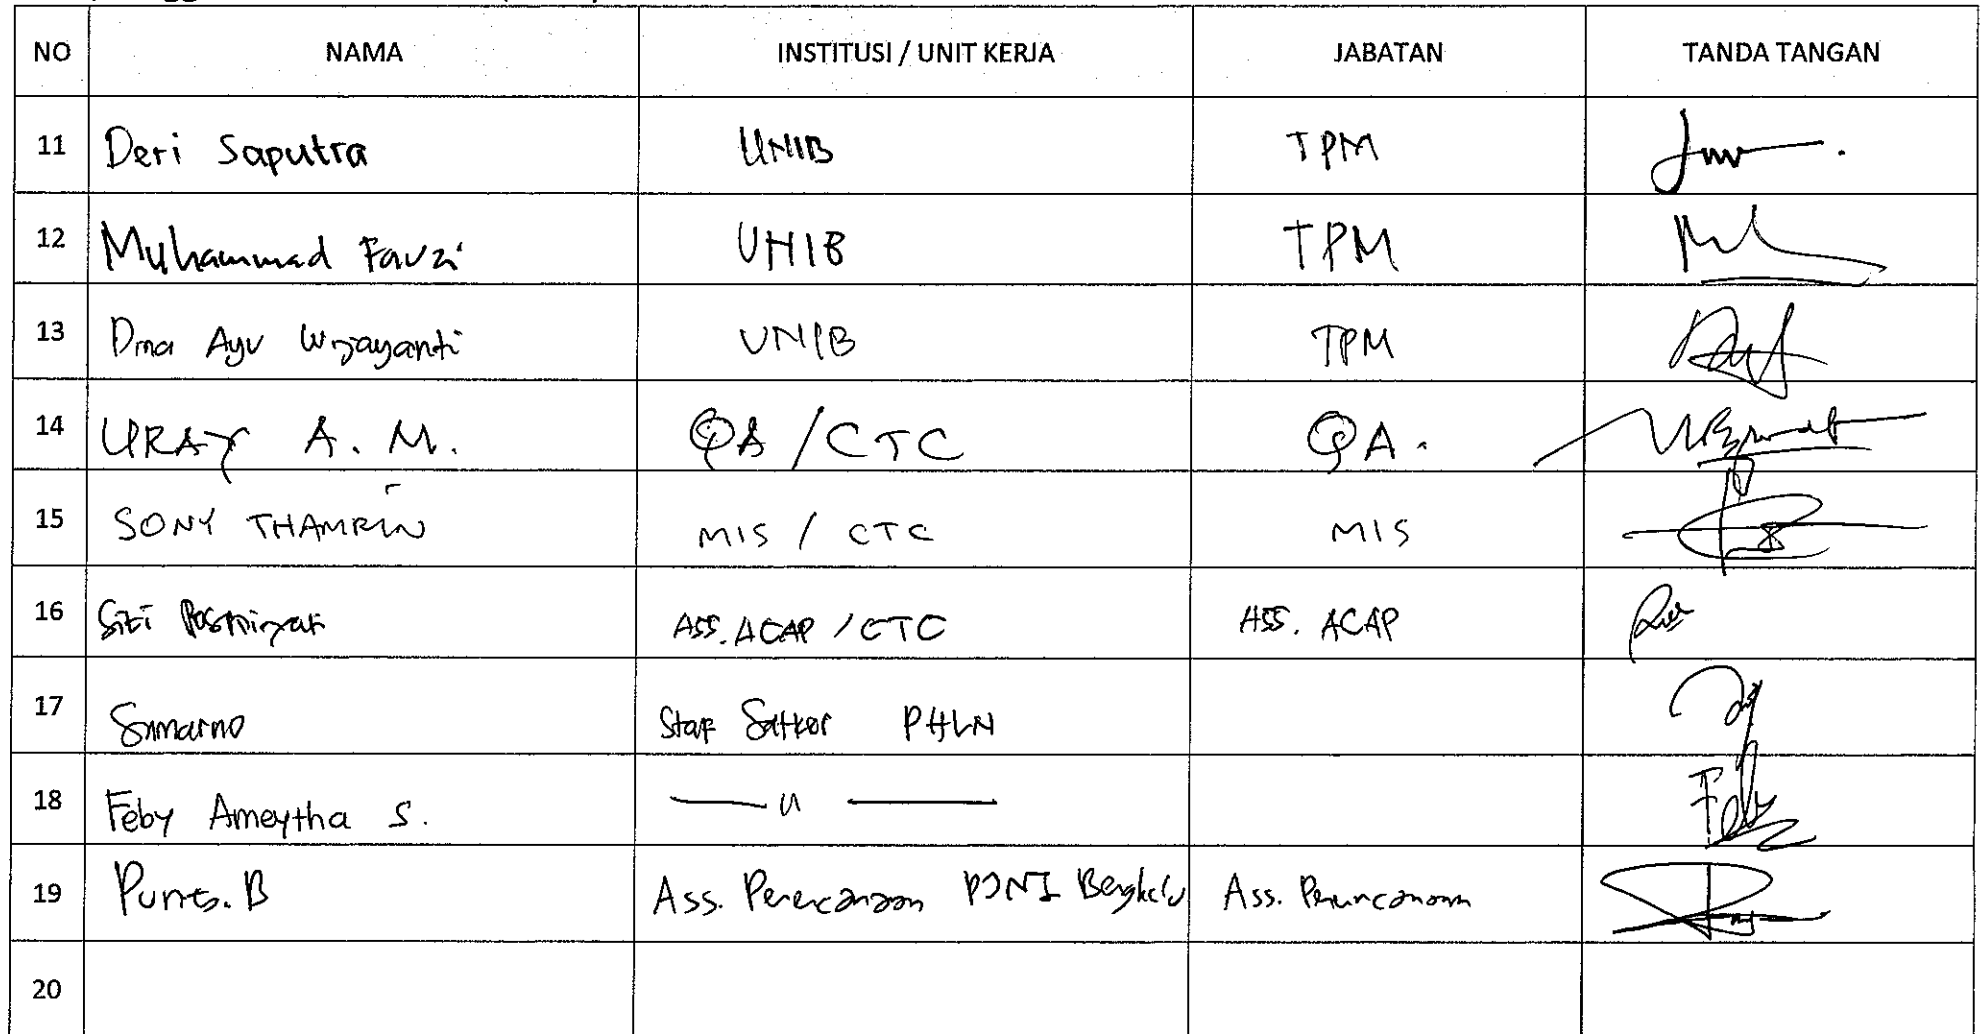 NO NAMA INSTITUSI / UNIT KERJA JABATAN TANDA TANGAN
11 Deri Saputra UNIB TPM
12 Muhammad Fauzi UNIB TPM
13 Dina Ayu Wijayanti UNIB TPM
14 URAY A. M. QA / CTC QA.
15 SONY THAMRIN MIS / CTC MIS
16 Siti ASS. ACAP / CTC ASS. ACAP
17 Staf Satker PHLN
18 Feby Ameytha S. — 〃 — Feby
19 B Ass. Perencanaan PJN I Bengkulu Ass. Perencanaan
20